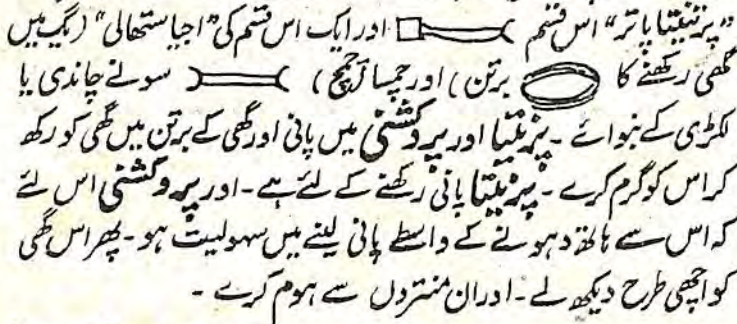 ”پرنیتاپاتر“ اس قسم اور ایک اس قسم کی ”اجیاستھالی“ (یگ میں
گھی رکھنے کا برتن) اور چمسا (چمچ) سونے چاندی یا
لکڑی کے بنوائے ۔ پرنیتا اور پروکشنی میں پانی اور گھی کے برتن میں گھی کو رکھ
کر اس کو گرم کرے ۔ پرنیتا پانی رکھنے کے لئے ہے ۔ اور پروکشنی اس لئے
کہ اس سے ہاتھ دہونے کے واسطے پانی لینے میں سہولیت ہو ۔ پھر اس گھی
کو اچھی طرح دیکھ لے ۔ اور ان منتروں سے ہوم کرے ۔